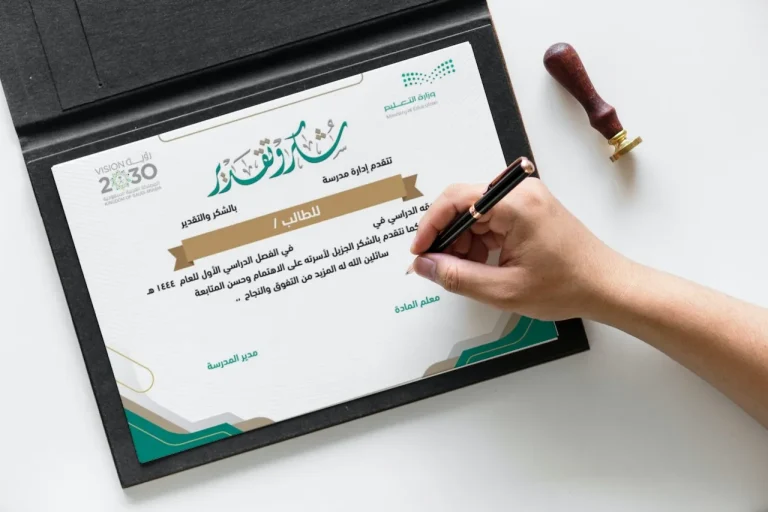 وزارة التعليم
Ministry of Education
VISION رؤية
2030
المملكة العربية السعودية
KINGDOM OF SAUDI ARABIA
شكر وتقدير
تتقدم إدارة مدرسة
بالشكر والتقدير
للطالب /
الدراسي في
في الفصل الدراسي الأول للعام ١٤٤٤ هـ
كما نتقدم بالشكر الجزيل لأسرته على الاهتمام وحسن المتابعة
سائلين الله له المزيد من التفوق والنجاح ,,
معلم المادة
مدير المدرسة